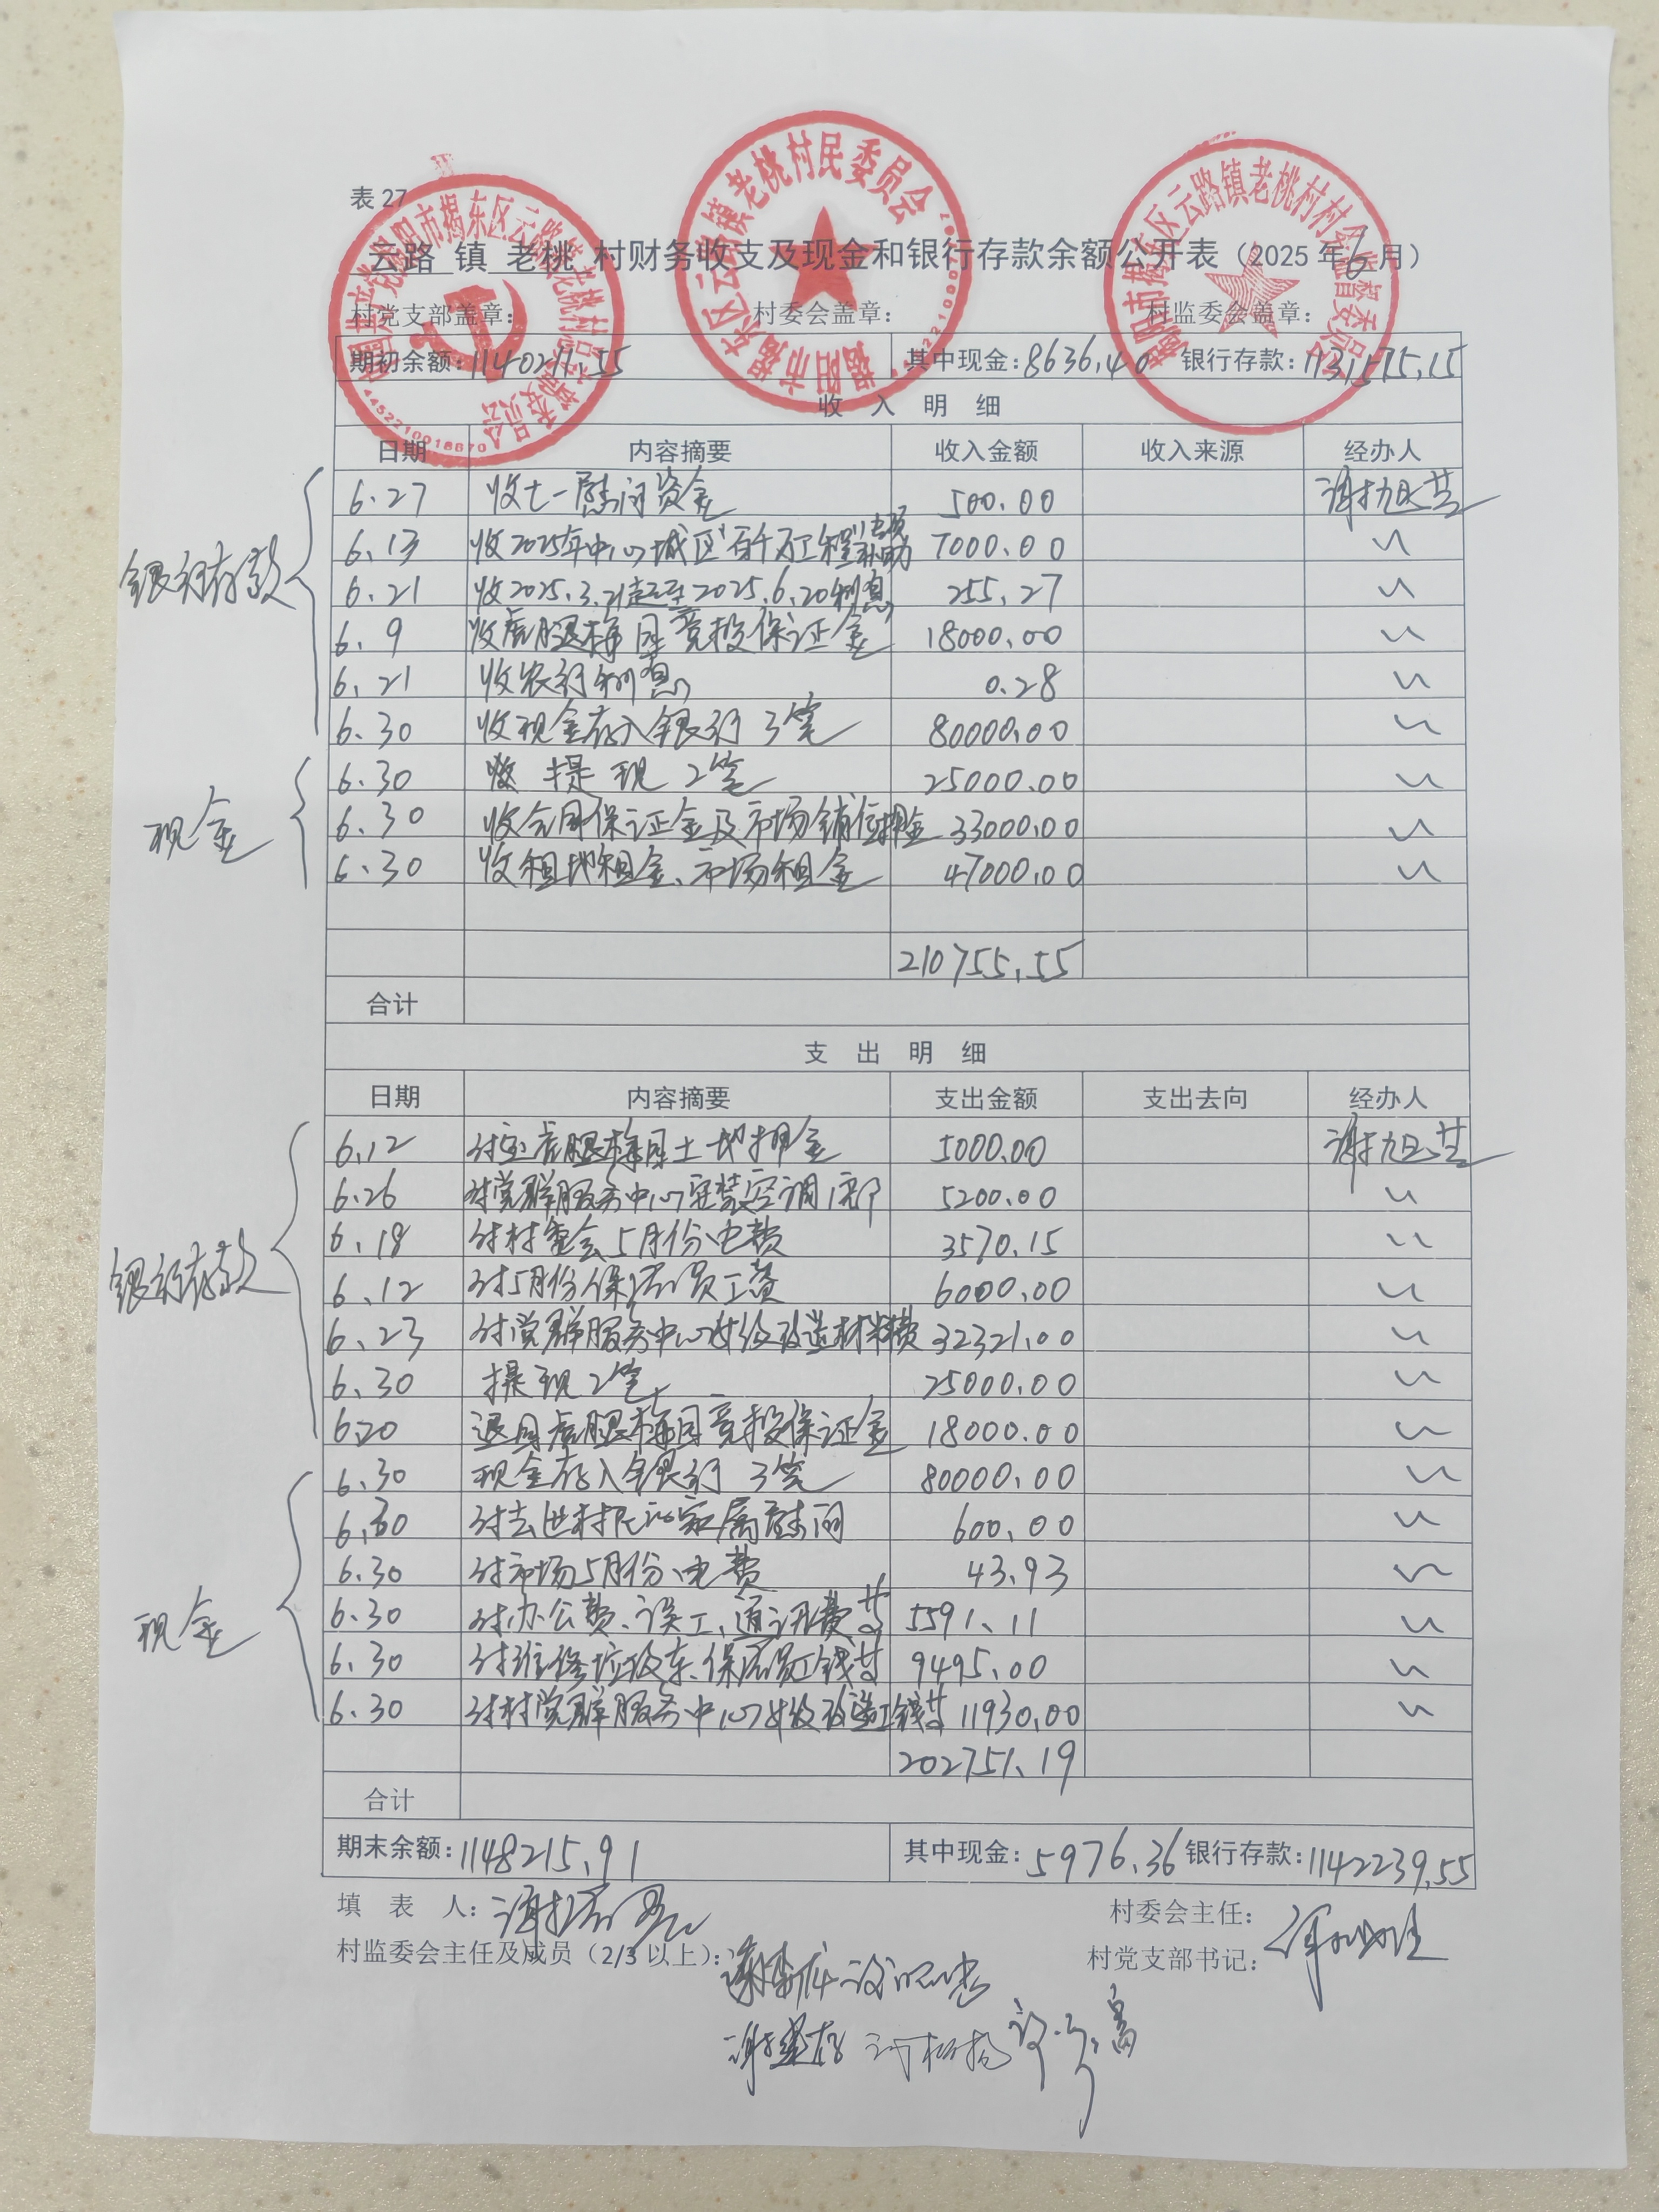 表 27
云路 镇 老桃 村财务收支及现金和银行存款余额公开表（2025 年 6 月）
村党支部盖章： 村委会盖章： 村监委会盖章：
期初余额：1140211.55 其中现金：8636.40 银行存款：1131575.15
收 入 明 细
日期 内容摘要 收入金额 收入来源 经办人
银行存款
6.27 收七一慰问资金 500.00 谢旭芸
6.13 收2025年中心城区百千万工程 补助 7000.00 〃
6.21 收2025.3.21起至2025.6.20利息 255.27 〃
6.9 收虎腿梅园竞投保证金 18000.00 〃
6.21 收农行利息 0.28 〃
6.30 收现金存入银行 3笔 80000.00 〃
现金
6.30 收 提 现 2笔 25000.00 〃
6.30 收合同保证金及市场铺位押金 33000.00 〃
6.30 收租地租金、市场租金 47000.00 〃
210755.55
合计
支 出 明 细
日期 内容摘要 支出金额 支出去向 经办人
银行存款
6.12 付 虎腿梅园土地押金 5000.00 谢旭芸
6.26 付党群服务中心安装空调1部 5200.00 〃
6.18 付村委会5月份电费 3570.15 〃
6.12 付5月份保洁员工资 6000.00 〃
6.23 付党群服务中心升级改造材料费 32321.00 〃
6.30 提现2笔 25000.00 〃
6.20 退回虎腿梅园竞投保证金 18000.00 〃
现金
6.30 现金存入银行 3笔 80000.00 〃
6.30 付去世村民家属慰问 600.00 〃
6.30 付市场5月份电费 43.93 〃
6.30 付办公费、误工、通讯费等 5591.11 〃
6.30 付维修垃圾车、保洁员工钱等 9495.00 〃
6.30 付村党群服务中心升级改造工钱等 11930.00 〃
202751.19
合计
期末余额：1148215.91 其中现金：5976.36 银行存款：1142239.55
填 表 人： 村委会主任：
村监委会主任及成员（2/3 以上）： 村党支部书记：